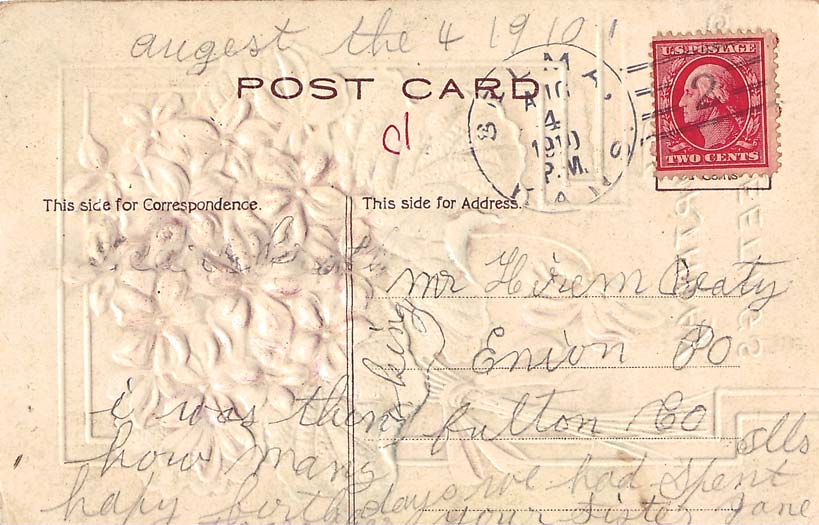 augest the 4 1910
POST CARD
d
AUG
4
1910
P.M.
KANS
U.S. POSTAGE
2
TWO CENTS
This side for Correspondence.
This side for Address.
mr Hirem Beaty
Enion Po
fulton Co
ills
i was thinking
how many
hapy birthdays we had spent
your sister Jane